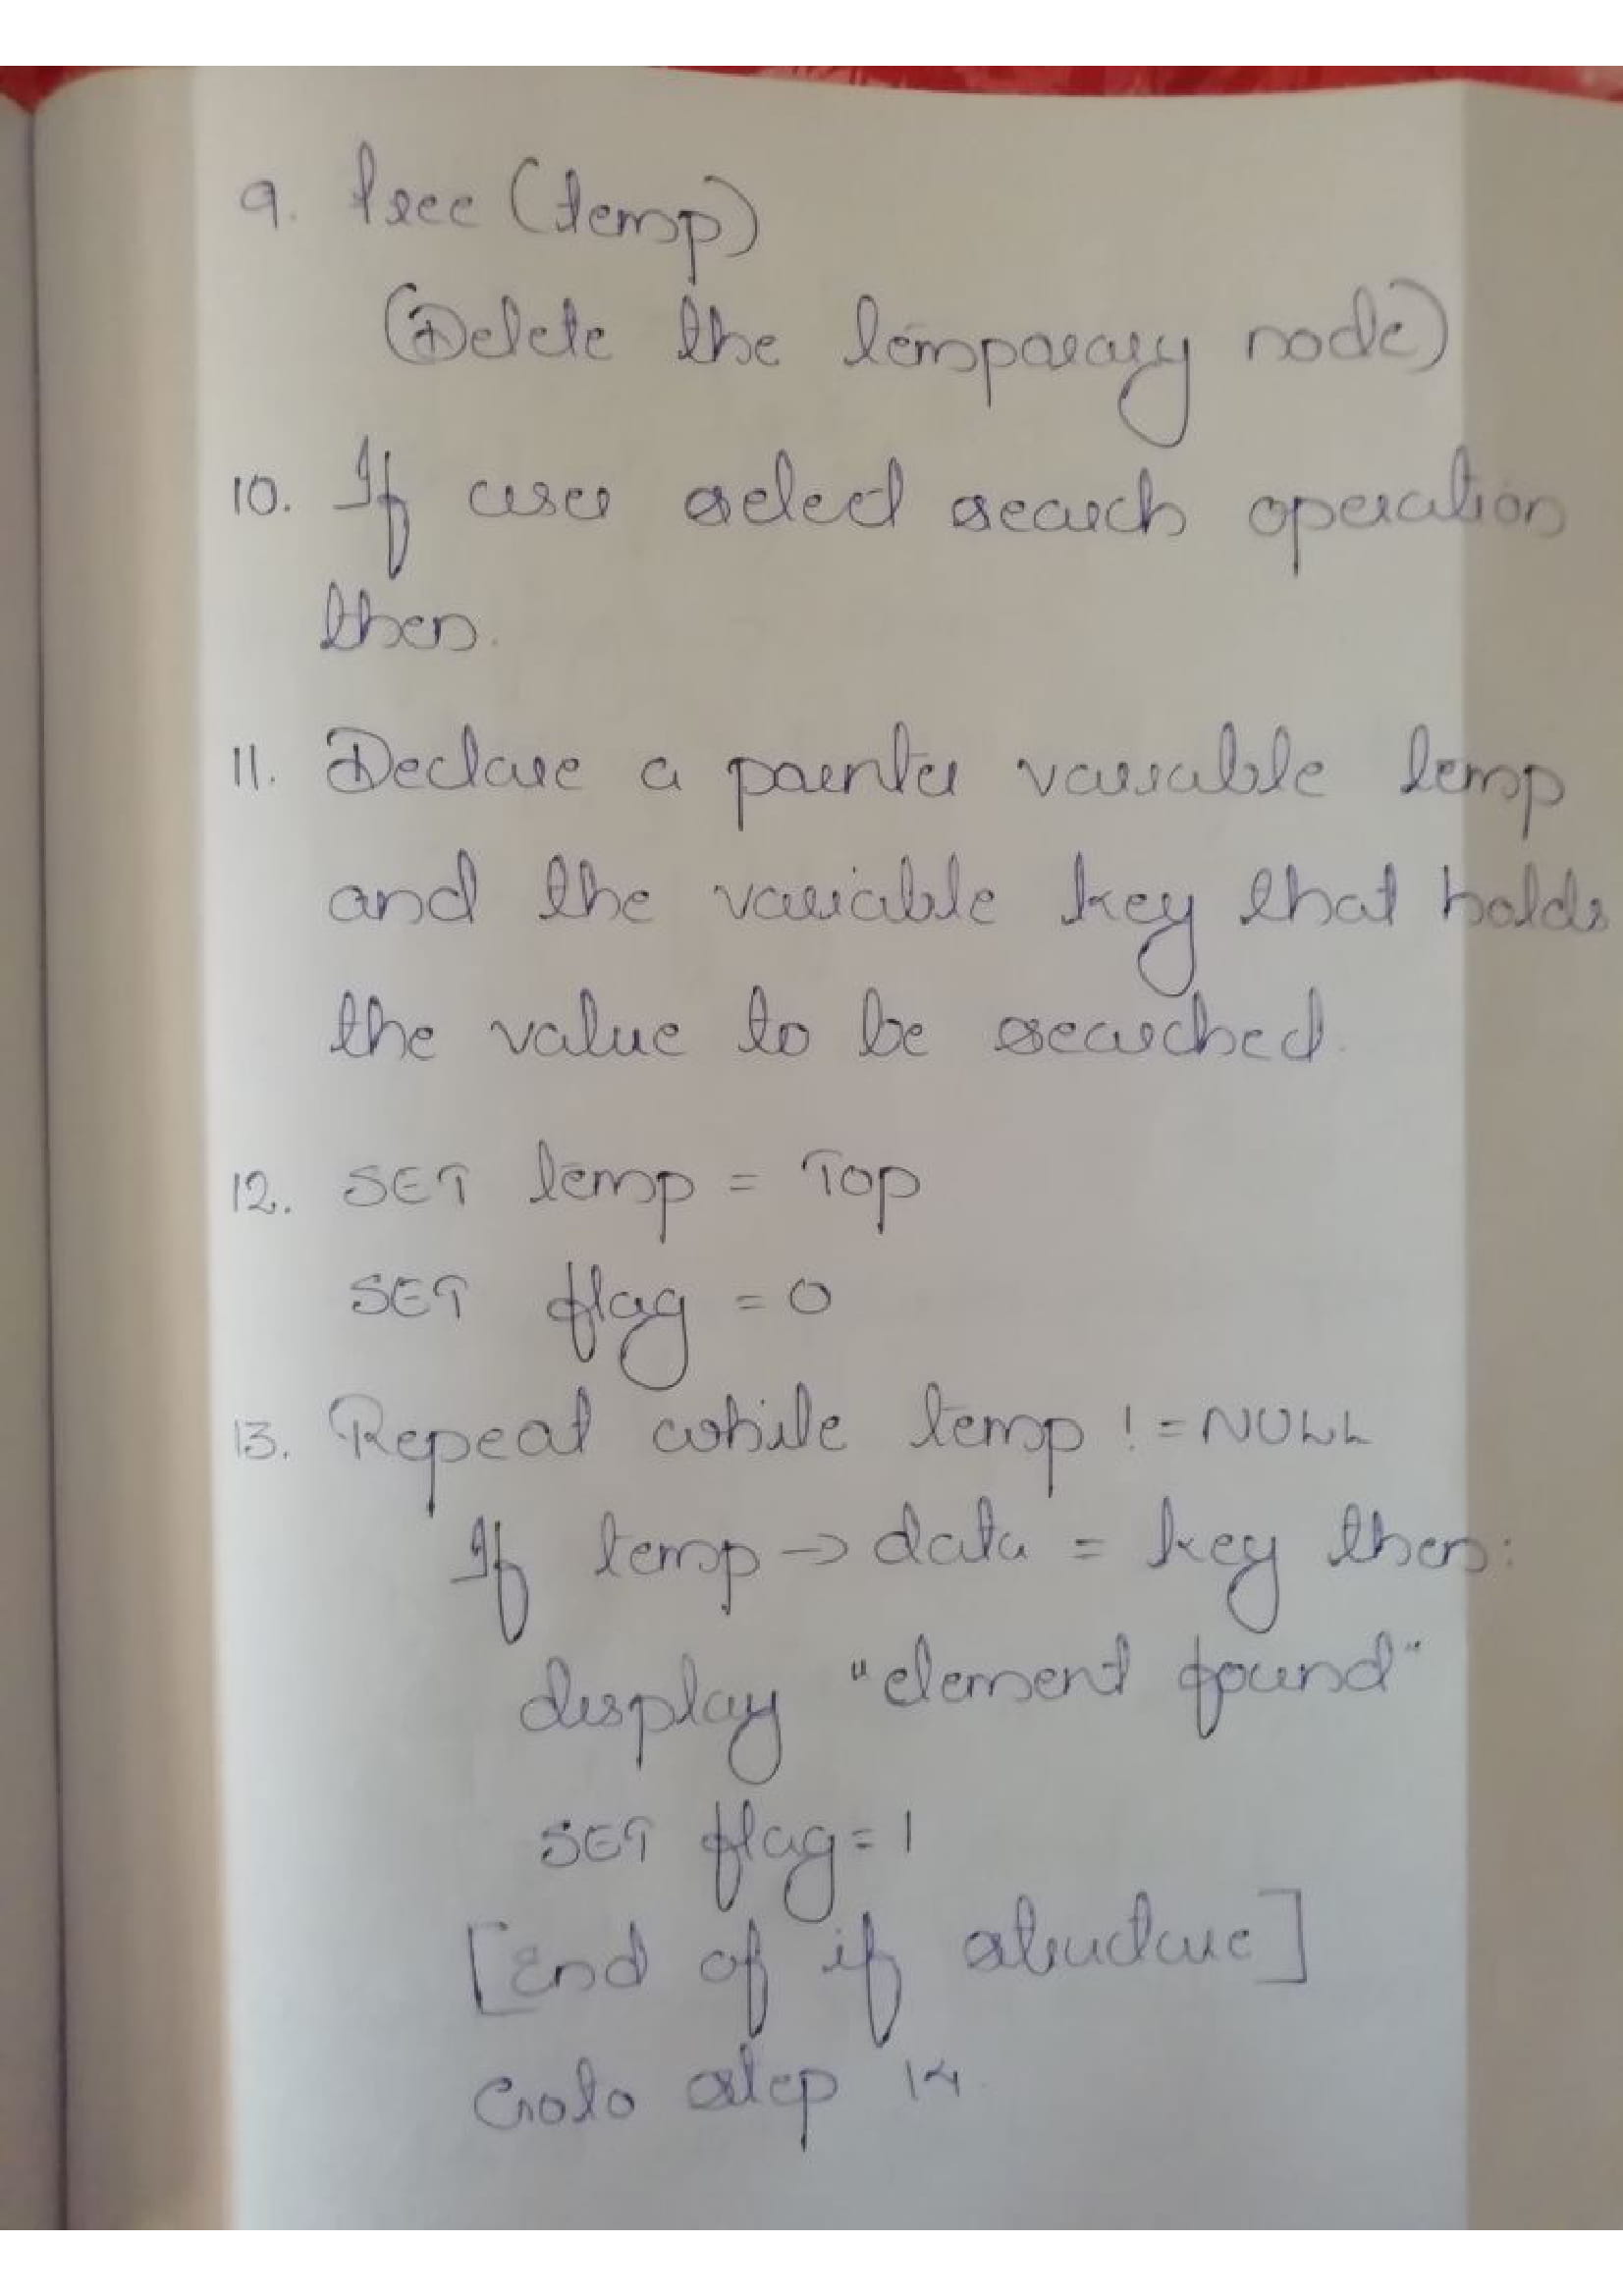 9. free (temp)
(Delete the temparary node)
10. If user select search operation
then.
11. Declare a pointer variable temp
and the variable key that holds
the value to be searched.
12. SET temp = Top
SET flag = 0
13. Repeat while temp != NULL
If temp → data = key then:
display "element found"
SET flag = 1
[End of if structure]
Goto step 14.